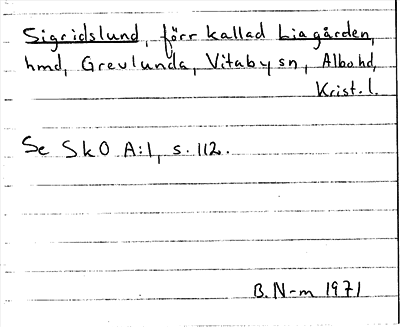 Sigridslund, förr kallad Liagården,
hmd, Grevlunda, Vitaby sn, Albo hd,
Krist. l.
Se SkO A:1, s. 112.
B. N-m 1971